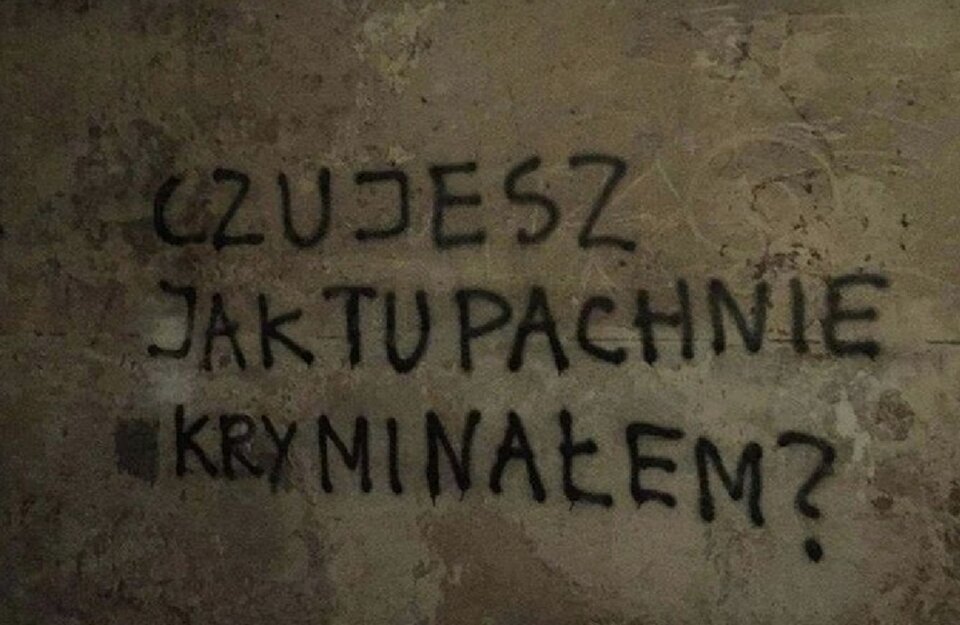 CZUJESZ
JAK TU PACHNIE
KRYMINAŁEM?